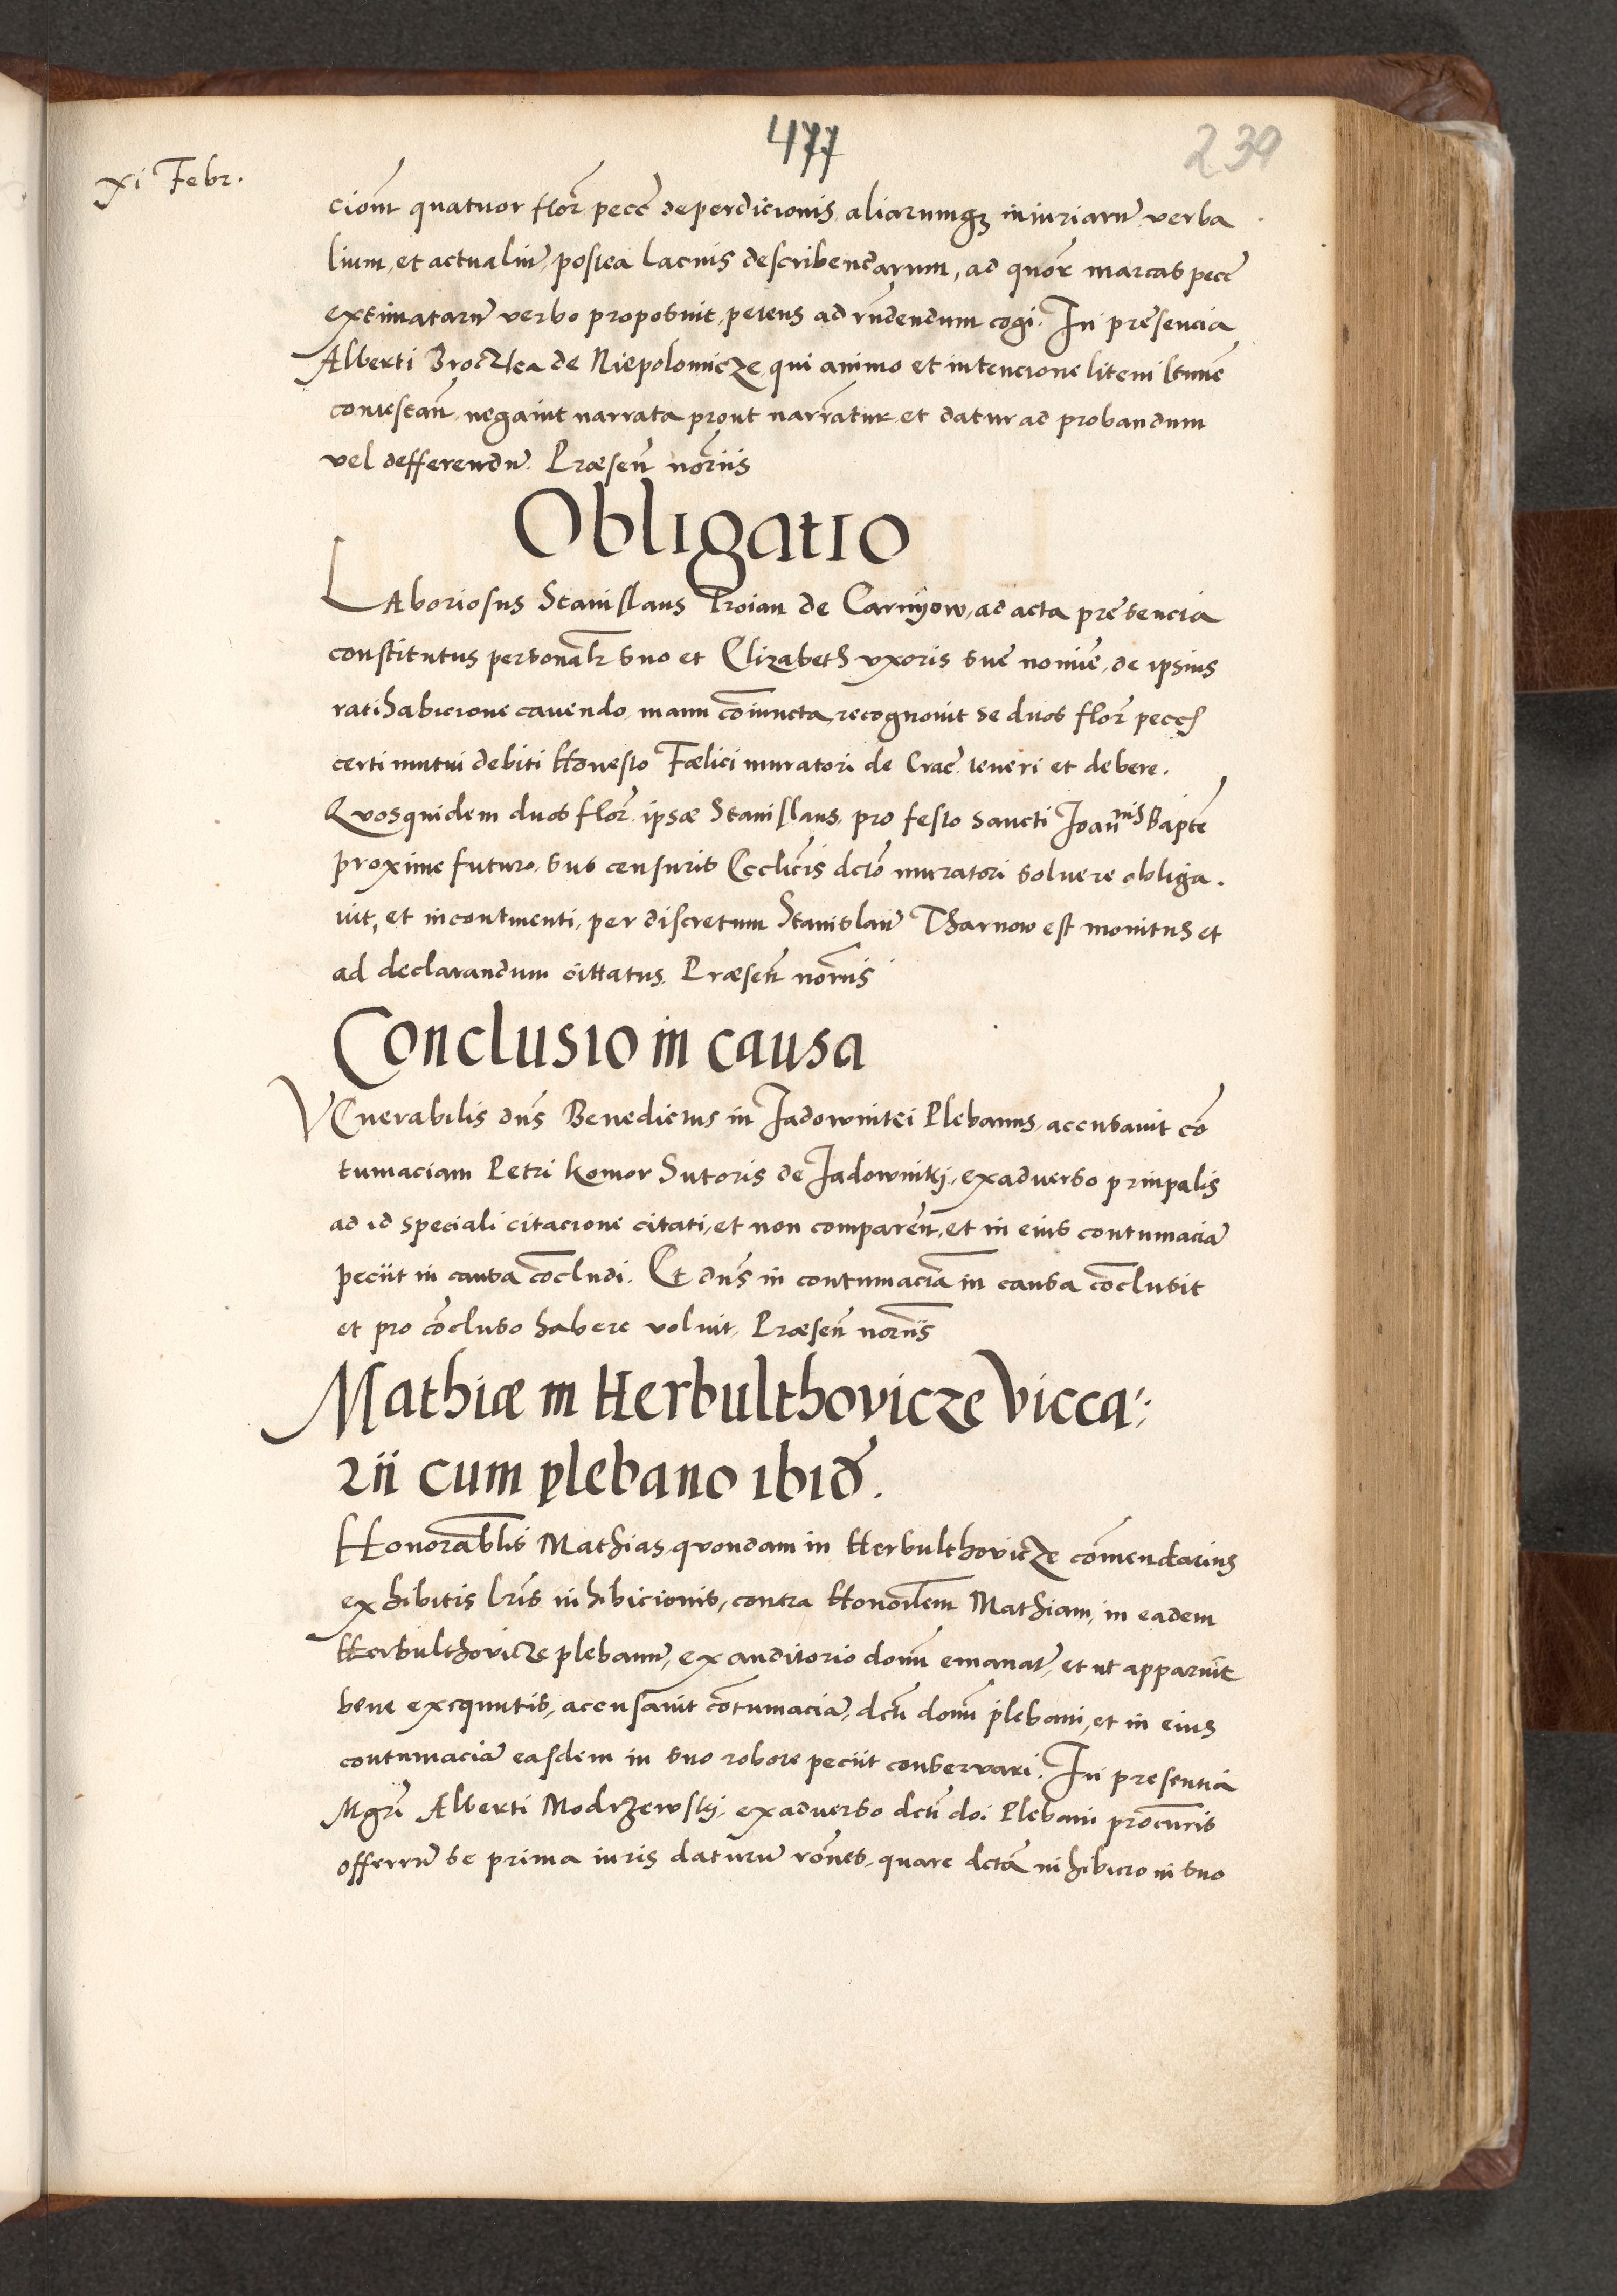 477
239
xi Febr.
cionē quatuor florē pecē deperdicionis, aliarumqȝ iniuriarū, verba
lium, et actualiū, postea lacius describendarum, ad quorē marcas pecē
extimatarū verbo proposuit, petens ad rñdendum cogi. In presencia
Alberti de Niepolomicze, qui animo et intencione litem
contestañ, negauit narrata prout narrātur, et datur ad probandum
vel defferendū. Præseñ norīis
Obligatio
LAboriosus Stanislaus Troian de Carnyow, ad acta presencia
constitutus personalr̄ suo et Elizabeth vxoris suę nomiē, de ipsius
ratihabicione cauendo, manu cōiuncta, recognouit se duos florē pecc
certi mutui debiti Honesto Fœlici muratori de Crac̄ teneri et debere.
Quosquidem duos florē ipsæ Stanislaus, pro festo sancti Joannis Baptē
proxime futuro, sub censuris Eccl̄icis dctō muratori soluere obliga.
uit, et incontinenti, per discretum Stanislaū Tharnow est monitus et
ad declarandum cittatus. Præseñ norīis
Conclusio in causa
VEnerabilis dñs Benedictus in Jadownitci Plebanus, accusauit cō
tumaciam Petri Komor Sutoris de Jadownikj, exaduerso prinpalis
ad id speciali citacione citati, et non compareñ, et in eius contumaciā
peciit in causa cōcludi. Et dñs in contumaciā in causa cōclusit
et pro cōcluso habere voluit. Præseñ norīis
Mathiæ in Herbulthovicze Vicca:
rii cum plebano ibid̄.
Honorablīs Mathias quondam in Herbulthovicze cōmendarius
exhibitis lrīs inhibicionis, contra Honorl̄em Mathiam, in eadem
Herbulthovicze plebanū, ex auditorio domī emanat̄, et ut apparuit
bene exequutis, accusauit cōtumaciā, dctī domī plebani, et in eius
contumaciā easdem in suo robore peciit conseruari. In presentia
Mgrī Alberti Modrzewskj, exaduerso dctī doi Plebani procūris
offerrū se prima iuris daturū rōnes, quare dctā inhibicio in suo